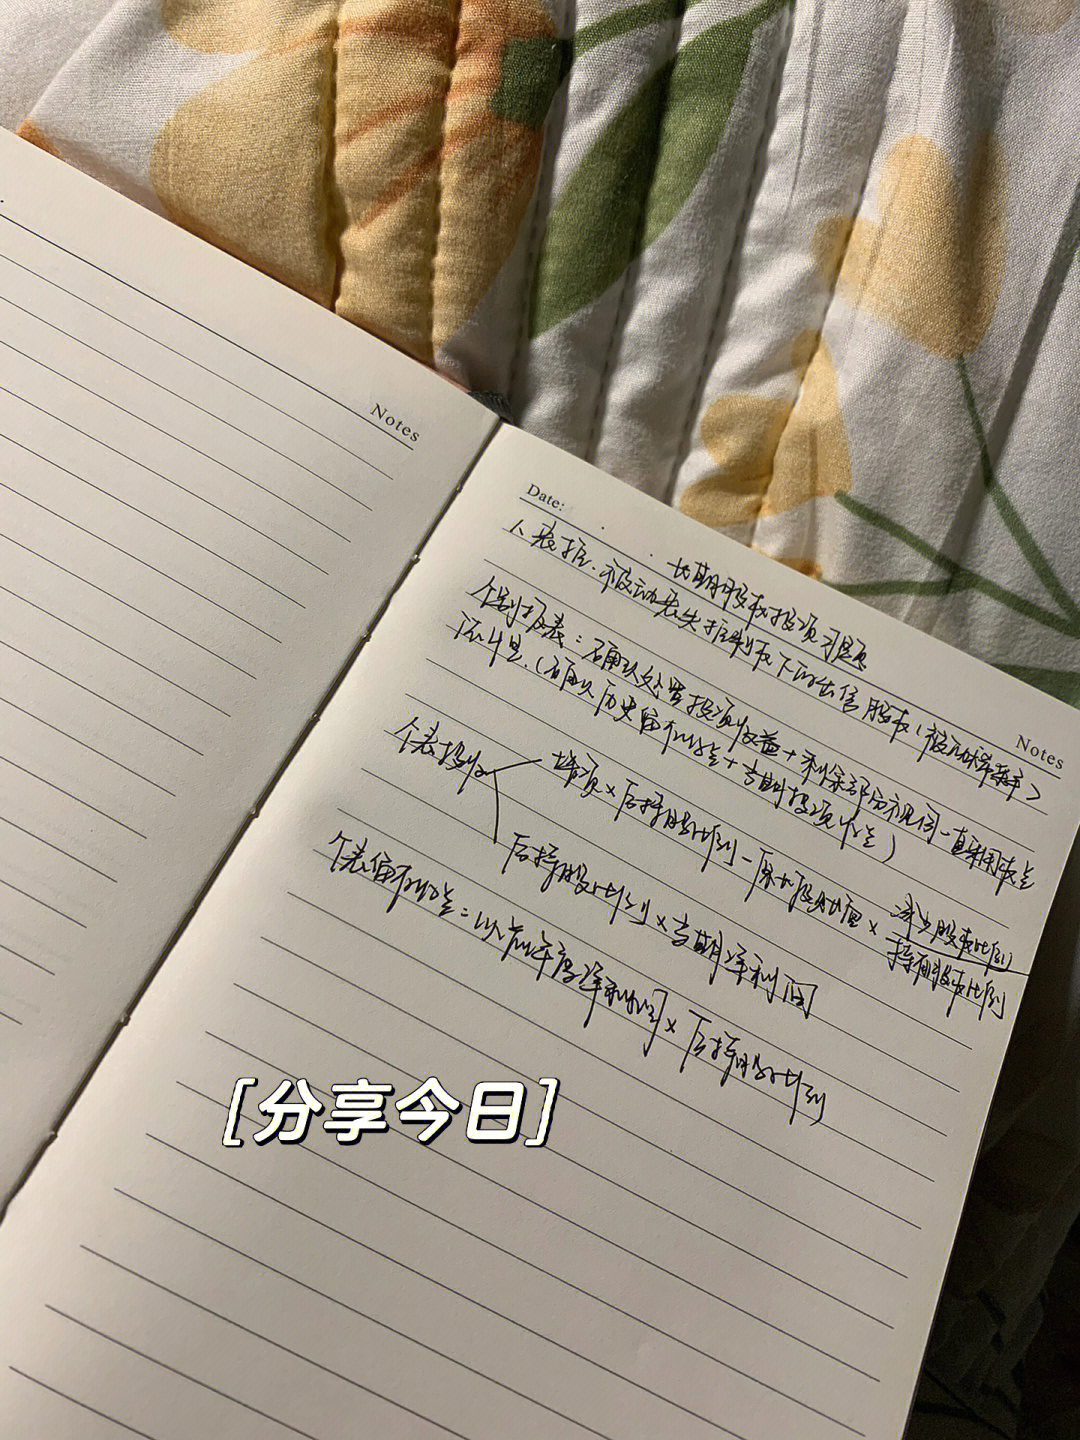 Notes
Date:
长期股权投资习题
1、丧控.被动丧失控制权下的出售股权(被动稀释)
个别报表:确认处置投资收益+剩余部分视同一直采用权益
法计量.(确认历史留存收益+当期投资收益)
个表投收
增资×后持股比例-原长投账面×减少股权比例/持有股权比例
后持股比例×当期净利润
个表留存收益=以前年度净利润×后持股比例
Notes
[分享今日]